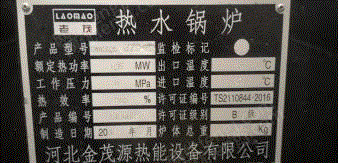 LAOMAO
老茂
热水锅炉
产品型号 监检标记
额定热功率 MW 出口温度 ℃
工作压力 MPa 进口温度 ℃
热效率 % 许可证编号 TS2110844-2016
产品编号 许可证级别 B 级
制造日期 20 年 月 炉体总重 Kg
河北金茂源热能设备有限公司